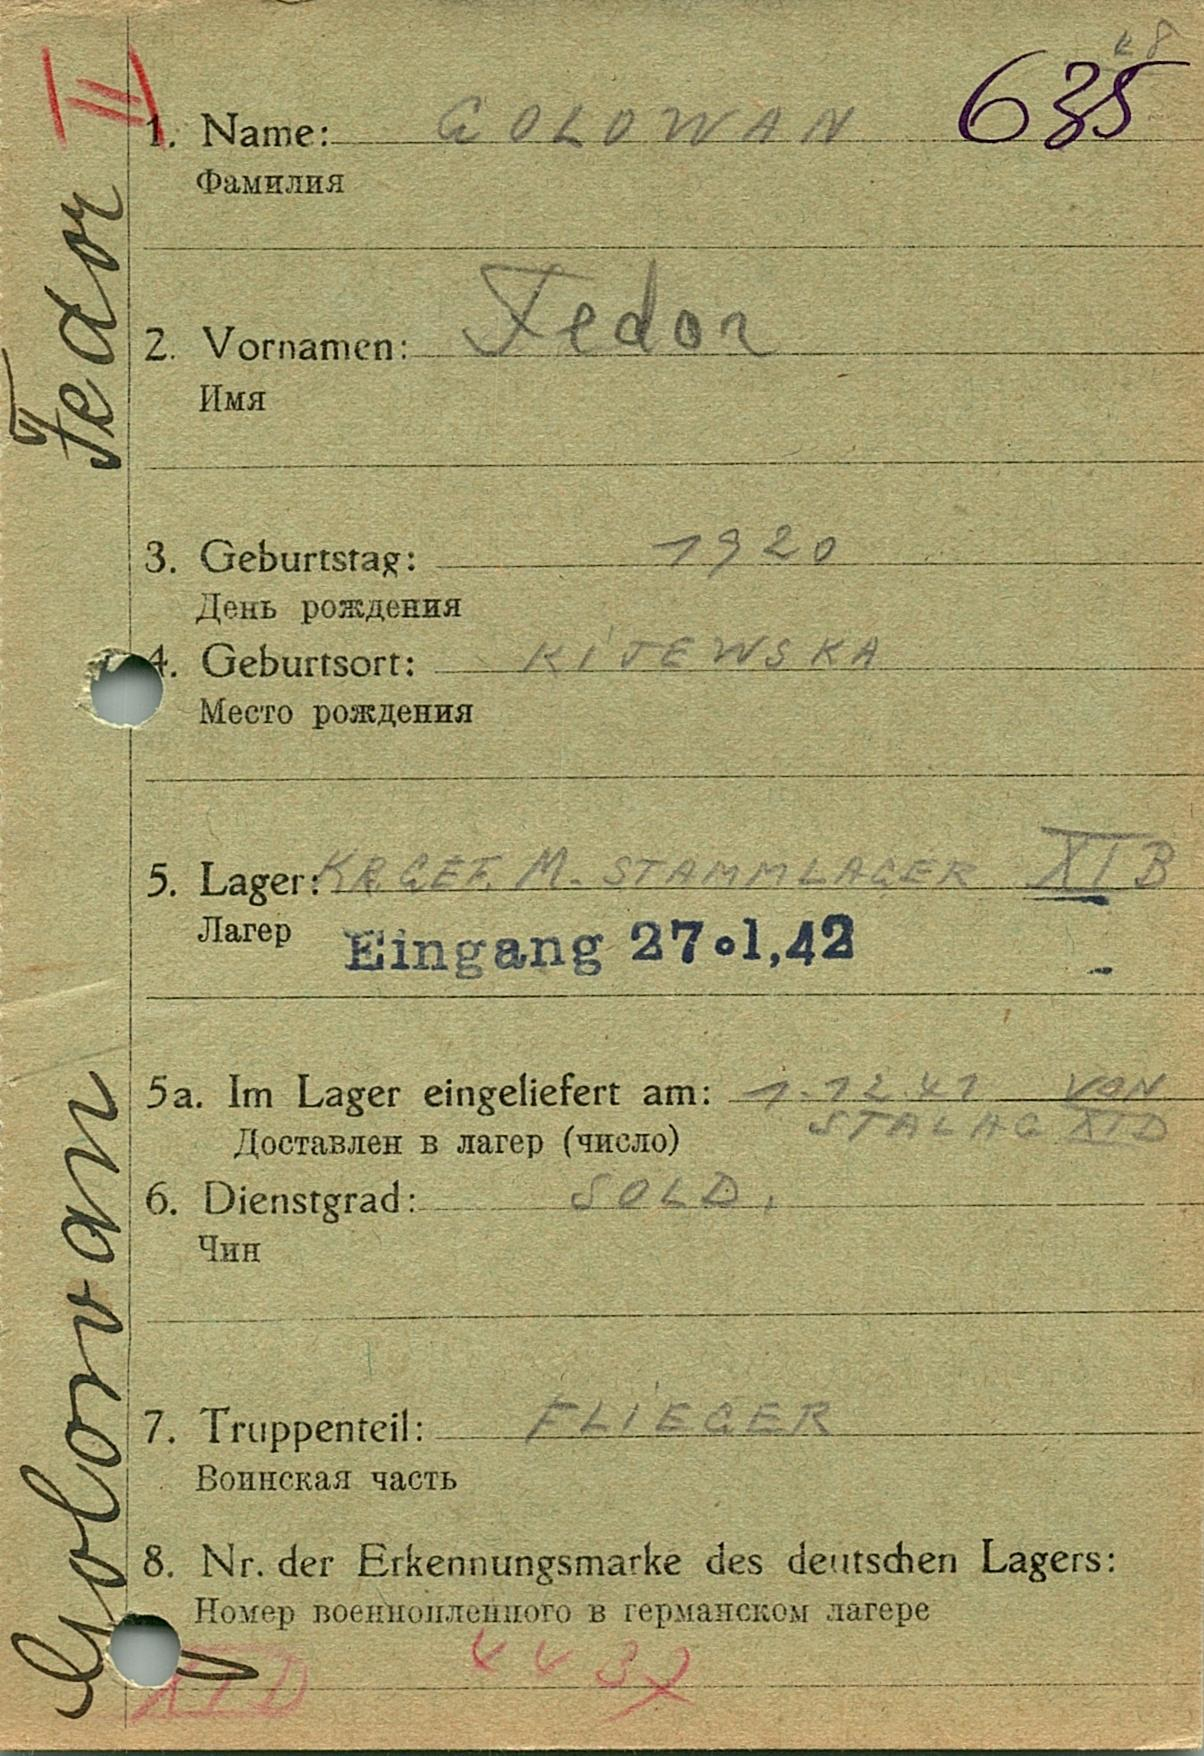 III
635
1. Name: GOLOWAN
Фамилия
2. Vornamen: Fedor
Имя
3. Geburtstag: 1920
День рождения
4. Geburtsort: KIJEWSKA
Место рождения
5. Lager: KR. GEF. M. STAMMLAGER XI B
Лагер
Eingang 27.1.42
5a. Im Lager eingeliefert am: 1.12.41 VON
STALAG XI D
Доставлен в лагер (число)
6. Dienstgrad: SOLD.
Чин
7. Truppenteil: FLIEGER
Воинская часть
8. Nr. der Erkennungsmarke des deutschen Lagers:
Номер военнопленного в германском лагере
XI D 4437
Golovan Fedor